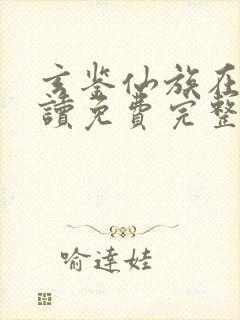 玄鉴仙族在
讀免費完整
喻達娃